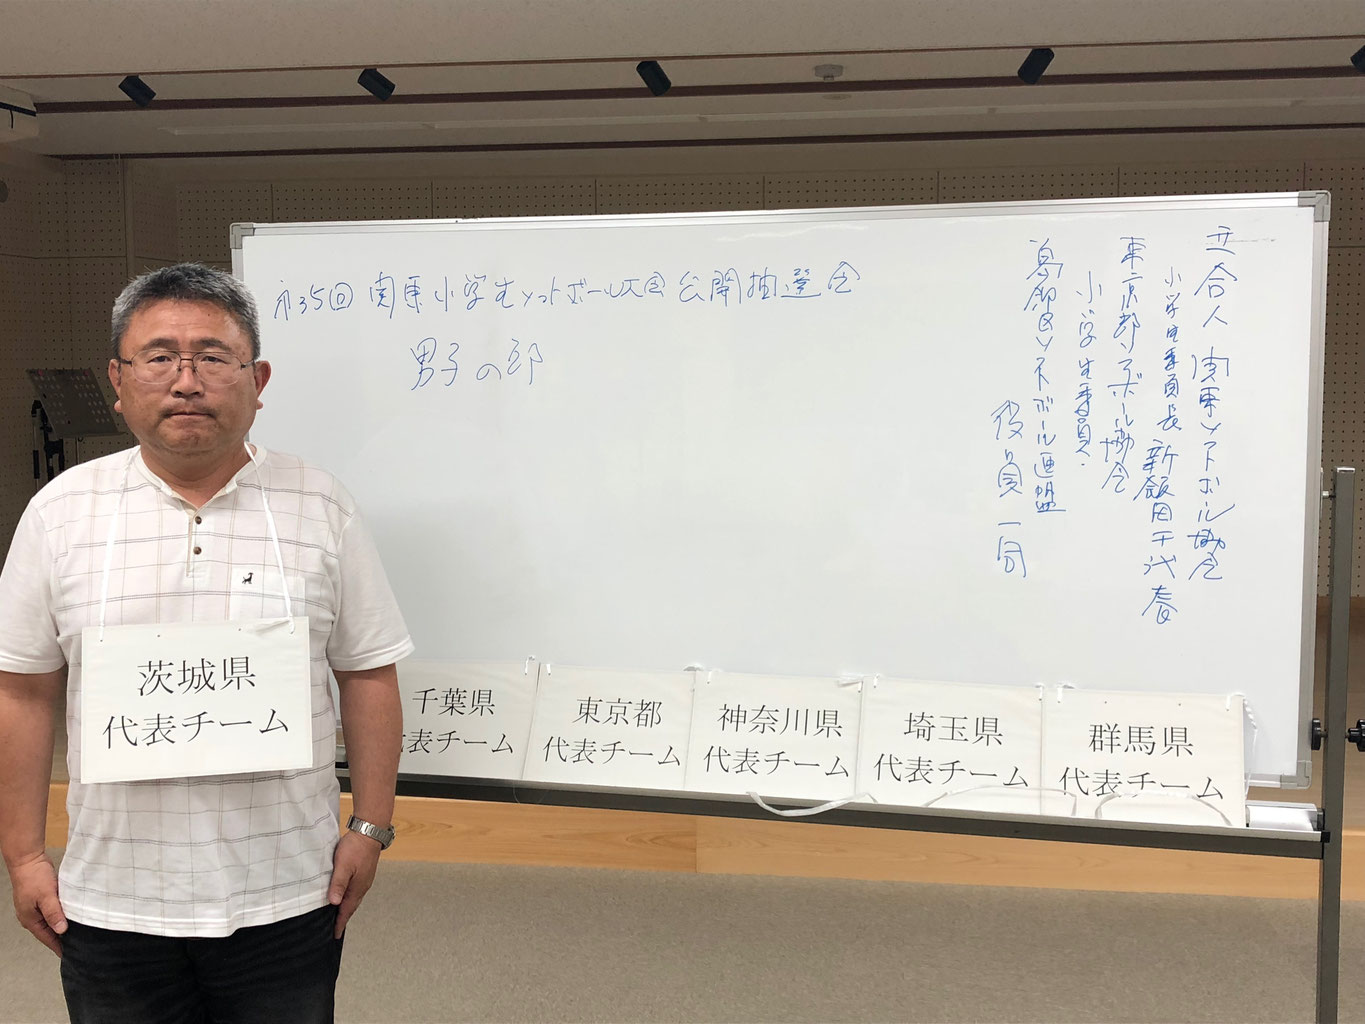 第35回 関東小学生ソフトボール大会 公開抽選会
男子の部
立合人 関東ソフトボール協会
小学生委員長 新飯田千代春
東京都ソフトボール協会
小学生委員.
葛飾区ソフトボール連盟
役員一同
茨城県
代表チーム
千葉県
代表チーム
東京都
代表チーム
神奈川県
代表チーム
埼玉県
代表チーム
群馬県
代表チーム